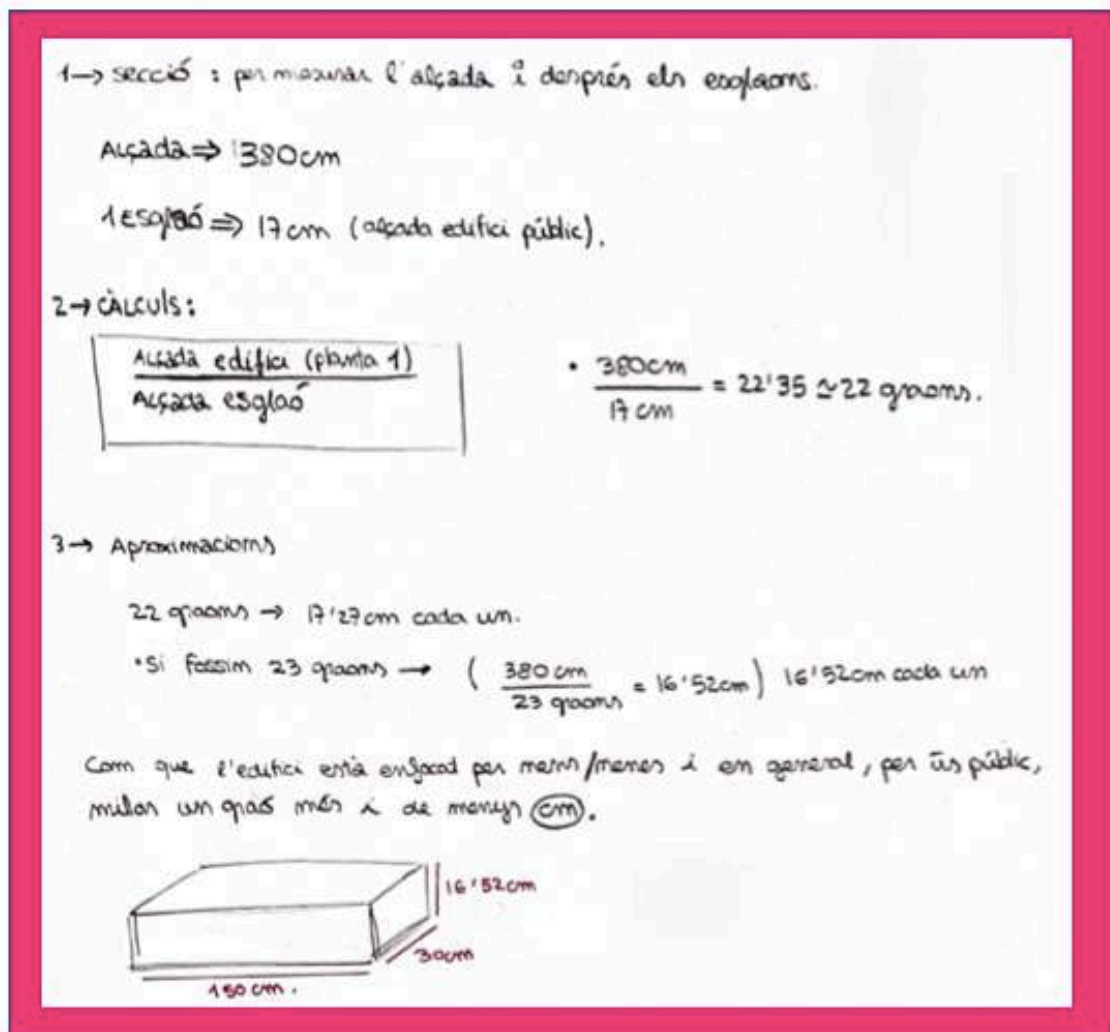 1→ secció : per mesurar l'alçada i després els esglaons.
Alçada ⇒ 380cm
1 esglaó ⇒ 17cm (alçada edifici públic).
2→ CÀLCULS:
Alçada edifici (planta 1)
Alçada esglaó
• 380cm / 17cm = 22'35 ≃ 22 graons.
3→ Aproximacions
22 graons → 17'27cm cada un.
•Si fossim 23 graons → ( 380cm / 23 graons = 16'52cm ) 16'52cm cada un
Com que l'edifici està enfocat per nens/nenes i en general, per ús públic,
millor un graó més i de menys cm.
16'52cm
30cm
150cm.